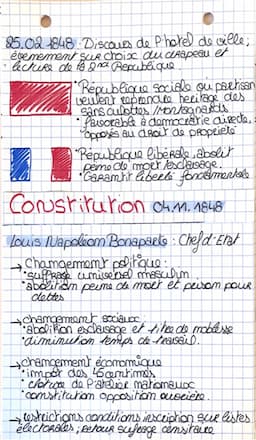 25.02.1848 : Discours de l'hotel de ville ;
évènement sur choix du drapeau et
lecture de la 2nd République
République sociale qui partisan
veulent reprendre heritage des
sans culottes / montagnards
favorable à democratie directe.
opposés au droit de propriété
République libérale, abolit
peine de mort esclavage.
Garantit liberté fondamentale
Constitution 04.11.1848
Louis Napoléon Bonaparte : Chef d'Etat
→ Changement politique :
suffrage universel masculin
abolition peine de mort et prison pour
dettes
→ changement sociaux
abolition esclavage et titre de noblesse
diminution temps de travail.
→ changement économique
impôt des 45 centimes
cloture de l'atelier nationaux
constitution opposition ouvrière.
→ restrictions conditions inscription sur listes
électorales ; retour sufrage censitaire